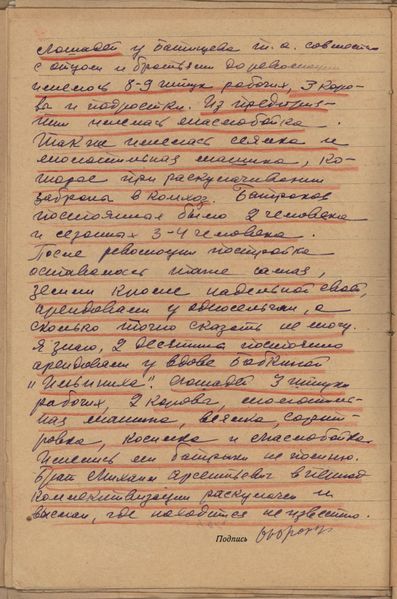 Лошадей у Батищева т.а. совместно
с отцом и братьями до революции
имелось 8-9 штук рабочих, 3 коро-
вы и подростки. Из предприя-
тий имелась маслобойка.
Также имелась сеялка и
молотильная машина, ко-
торое при раскулачивании
забраны в колхоз. Батраков
постоянная было 2 человека
и сезонных 3-4 человека.
После революции постройка
оставалось также самая,
земли кроме надельной своей,
арендовали у односельчан, а
сколько точно сказать не могу.
Я знаю, 2 десятины постоянно
арендовали у вдове Бабкиной
лошадей 3 штуки
рабочих, 2 коровы, молотиль-
ная машина, веялка, сорти-
ровка, косилка и маслобойка.
Имелись ли батраки не помню.
Брат Михаил Арсентьевич в период
коллективизации раскулачен и
выслан, где находится не известно.
Подпись